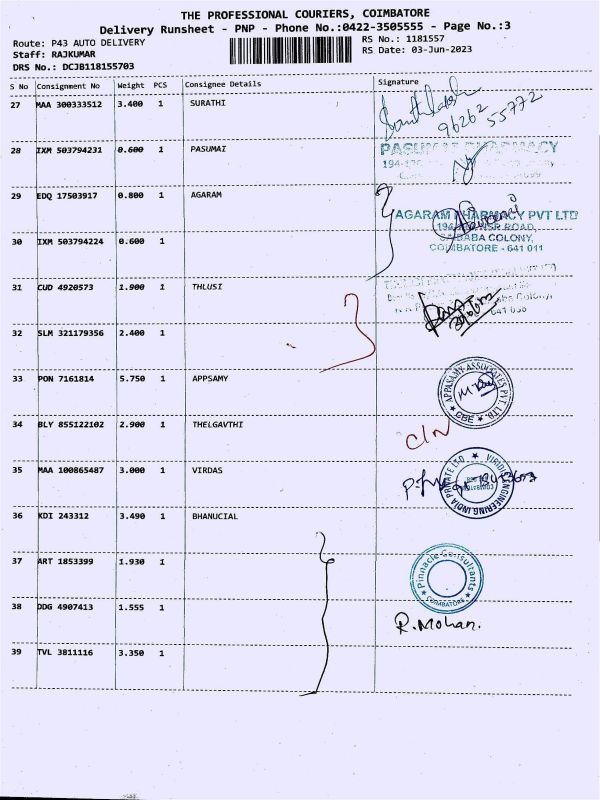 THE PROFESSIONAL COURIERS, COIMBATORE
Delivery Runsheet - PNP - Phone No.:0422-3505555 - Page No.:3
Route: P43 AUTO DELIVERY
RS No.: 1181557
Staff: RAJKUMAR
RS Date: 03-Jun-2023
DRS No.: DCJB118155703
S No Consignment No Weight PCS Consignee Details Signature
27 MAA 300333512 3.400 1 SURATHI
96262 55772
28 IXM 503794231 0.600 1 PASUMAI
PASUMAI PHARMACY
29 EDQ 17503917 0.800 1 AGARAM
AGARAM PHARMACY PVT LTD
NSR ROAD,
SAIBABA COLONY,
COIMBATORE - 641 011
30 IXM 503794224 0.600 1
31 CUD 4920573 1.900 1 THLUSI
Colony,
641 038
32 SLM 321179356 2.400 1
33 PON 7161814 5.750 1 APPSAMY
APPASAMY ASSOCIATES PVT. LTD
CBE
34 BLY 855122102 2.900 1 THELGAVTHI
C/N
35 MAA 100865487 3.000 1 VIRDAS
VIRIDIS ENGINEERING INDIA PRIVATE LTD
36 KDI 243312 3.490 1 BHANUCIAL
37 ART 1853399 1.930 1
Pinnacle Consultants
COIMBATORE
38 DDG 4907413 1.555 1
R. Mohan.
39 TVL 3811116 3.350 1